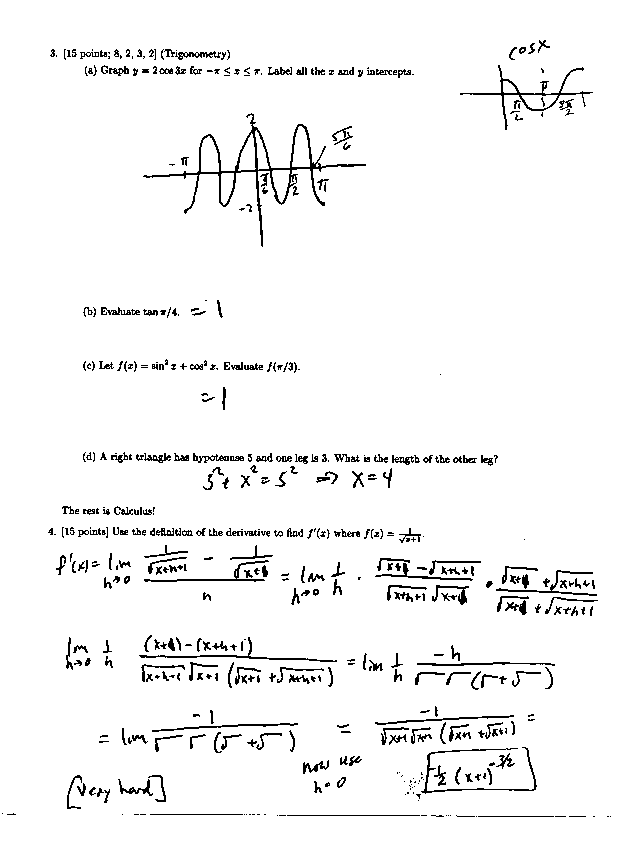 3. [15 points; 8, 2, 3, 2] (Trigonometry)
cos x
(a) Graph y = 2 cos 3x for −π ≤ x ≤ π. Label all the x and y intercepts.
π/2 π 3π/2
2
5π/6
−π π/6 π/2 π
−2
(b) Evaluate tan π/4. = 1
(c) Let f(x) = sin² x + cos² x. Evaluate f(π/3).
= 1
(d) A right triangle has hypotenuse 5 and one leg is 3. What is the length of the other leg?
3² + x² = 5² ⇒ x = 4
The rest is Calculus!
4. [15 points] Use the definition of the derivative to find f′(x) where f(x) = 1/√(x+1).
f'(x) = lim h→0 (1/√(x+h+1) − 1/√(x+1))/h = lim h→0 1/h · (√(x+1) − √(x+h+1))/(√(x+h+1) √(x+1)) · (√(x+1) + √(x+h+1))/(√(x+1) + √(x+h+1))
lim h→0 1/h ((x+1) − (x+h+1))/(√(x+h+1) √(x+1) (√(x+1) + √(x+h+1))) = lim 1/h −h/(√ √ (√ + √))
= lim −1/(√ √ (√ + √)) = −1/(√(x+1) √(x+1) (√(x+1) + √(x+1))) =
now use
h=0
−1/2 (x+1)^(−3/2)
[Very hard]